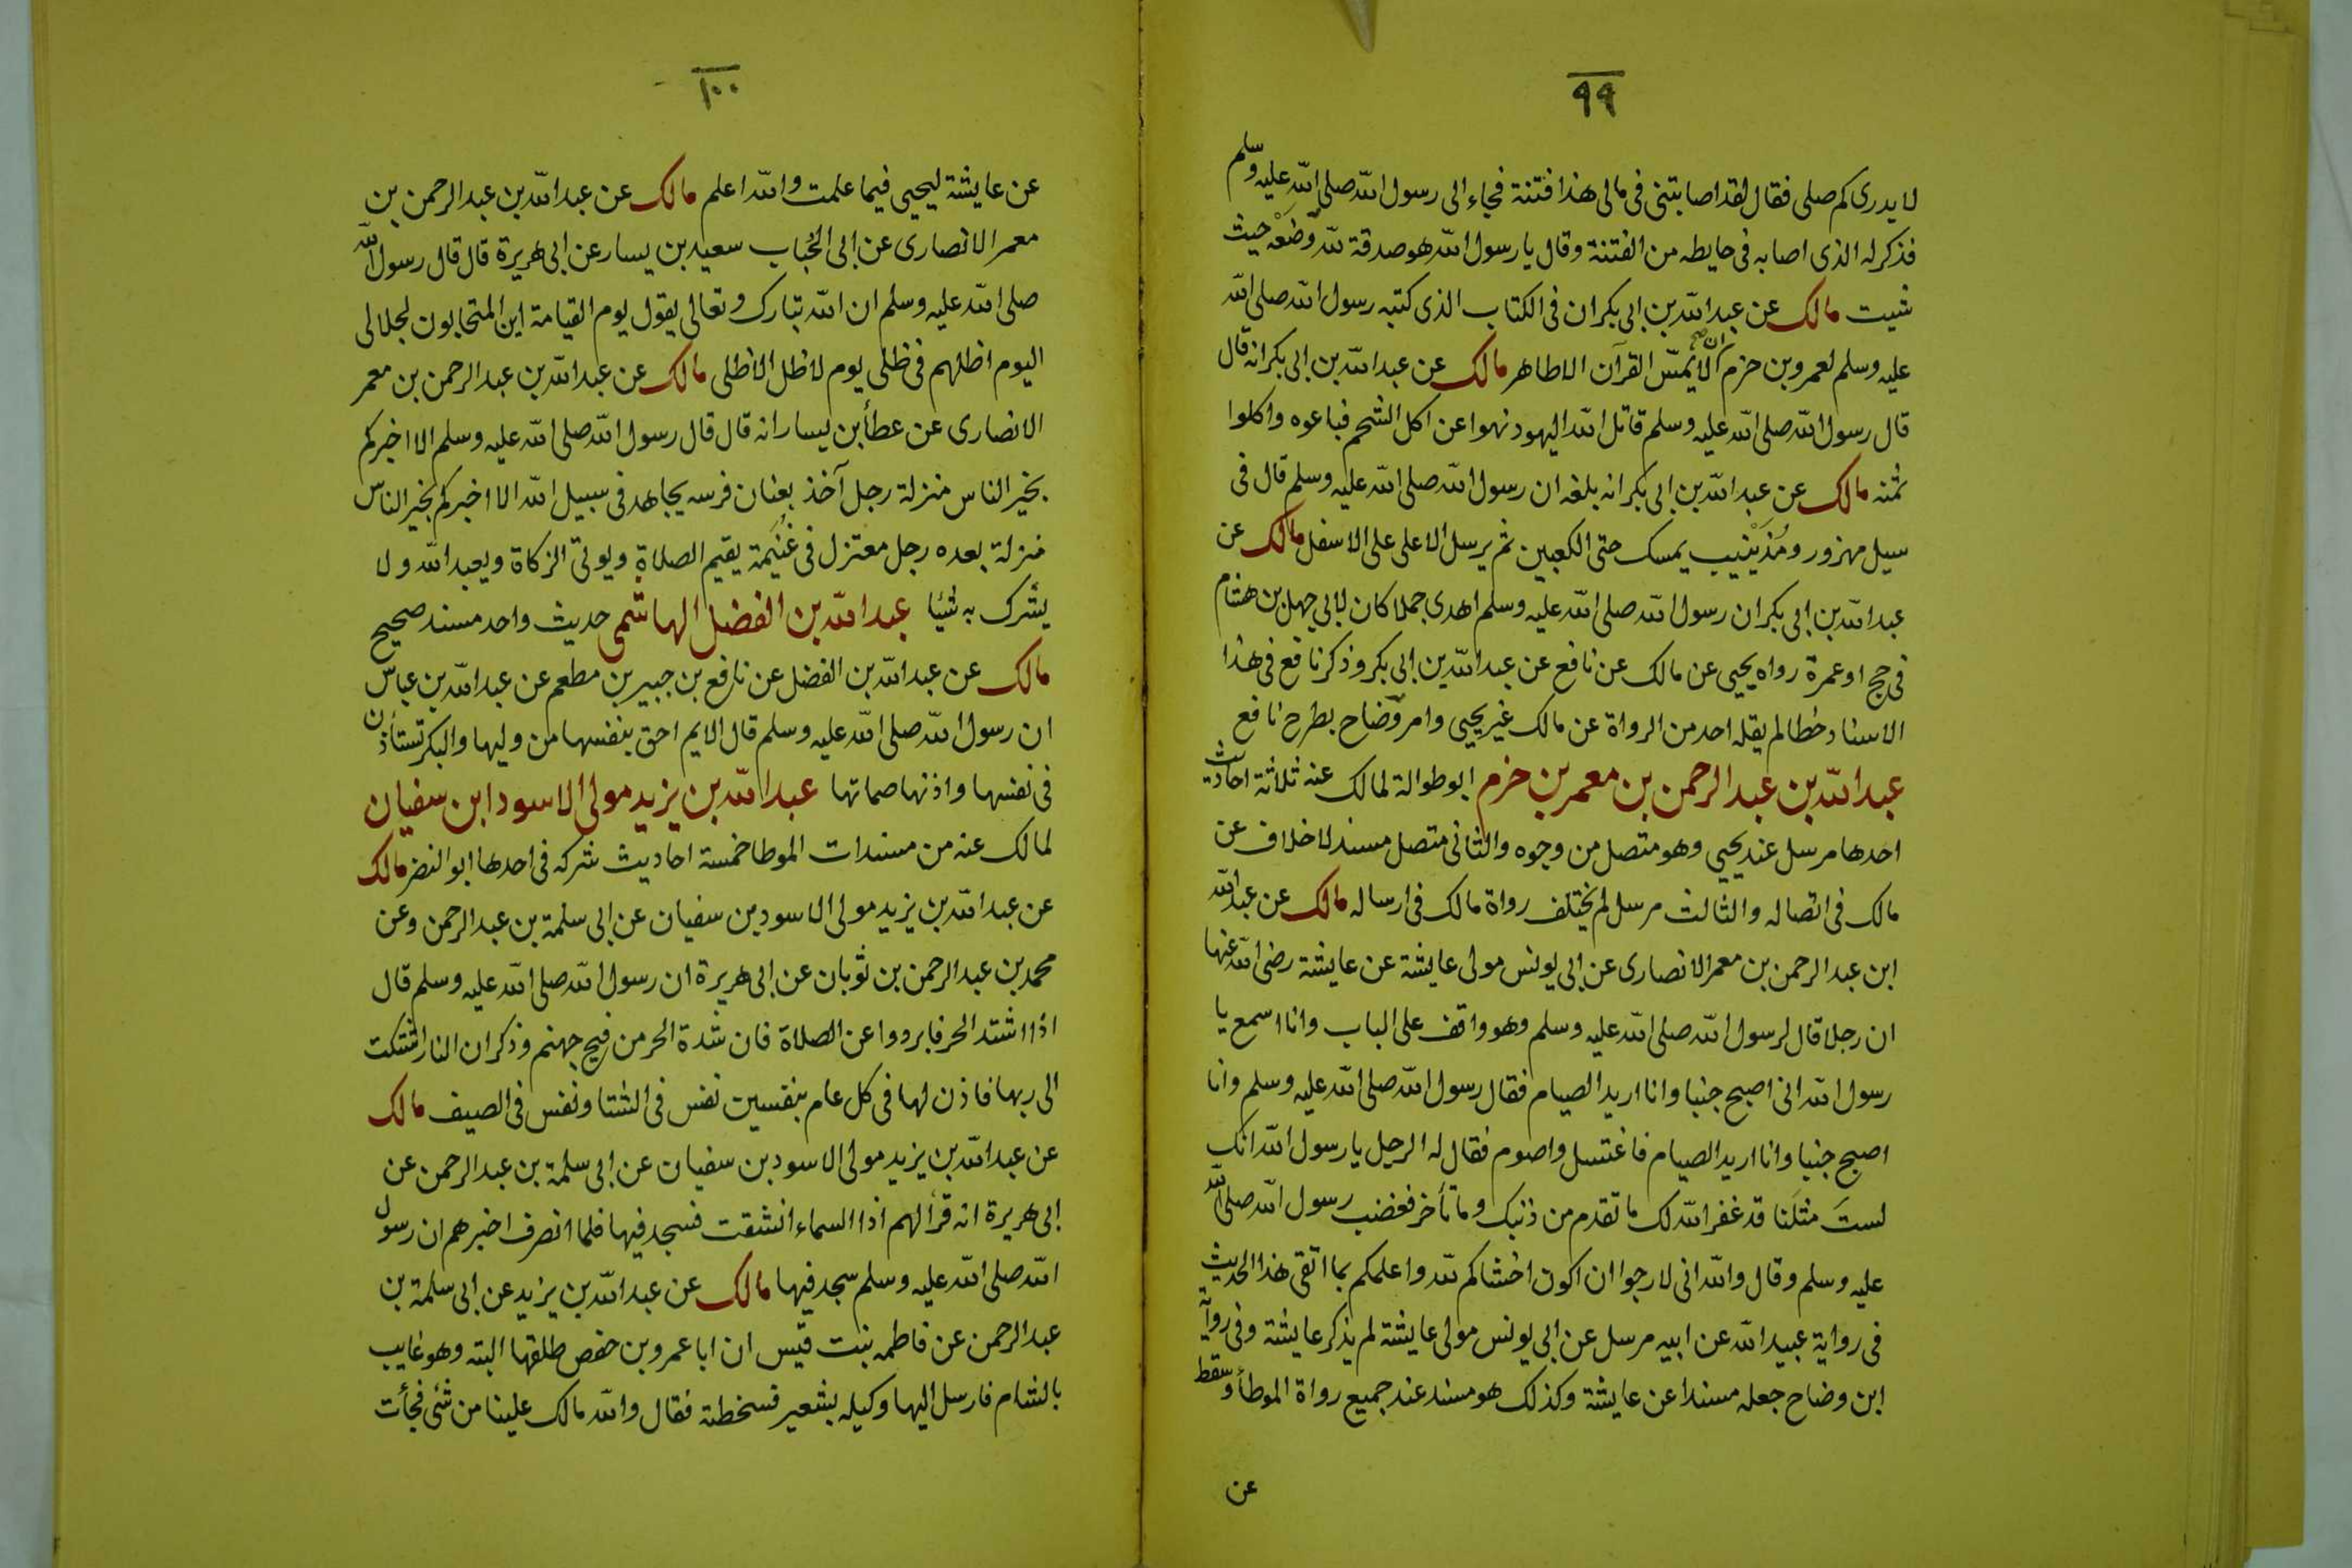 ٩٩
لا يدرى كم صلى فقال لقد اصابتنى فى مالى هذا فتنة فجاء الى رسول الله صلى الله عليه وسلم
فذكر له الذى اصابه فى حايطه من الفتنة وقال يا رسول الله هو صدقة لله وضَعْه حيث
شيت مالك عن عبد الله بن ابى بكر ان فى الكتاب الذى كتبه رسول الله صلى الله
عليه وسلم لعمرو بن حزم ان لا يمسّ القرآن الا طاهر مالك عن عبد الله بن ابى بكر انه قال
قال رسول الله صلى الله عليه وسلم قاتل الله اليهود نهوا عن اكل الشحم فباعوه واكلوا
ثمنه مالك عن عبد الله بن ابى بكر انه بلغه ان رسول الله صلى الله عليه وسلم قال فى
سيل مهزور ومُذَيْنيب يمسك حتى الكعبين ثم يرسل الاعلى على الاسفل مالك عن
عبد الله بن ابى بكر ان رسول الله صلى الله عليه وسلم اهدى جملا كان لابى جهل بن هشام
فى حج او عمرة رواه يحيى عن مالك عن نافع عن عبد الله بن ابى بكر وذكر نافع فى هذا
الاسناد خطا لم يقله احد من الرواة عن مالك غير يحيى وامر وضاح بطرح نافع
عبد الله بن عبد الرحمن بن معمر بن حزم ابو طوالة لمالك عنه ثلاثة احاديث
احدها مرسل عند يحيى وهو متصل من وجوه والثانى متصل مسند لا خلاف عن
مالك فى اتصاله والثالث مرسل لم يختلف رواة مالك فى ارساله مالك عن عبد الله
ابن عبد الرحمن بن معمر الانصارى عن ابى يونس مولى عايشة عن عايشة رضى الله عنها
ان رجلا قال لرسول الله صلى الله عليه وسلم وهو واقف على الباب وانا اسمع يا
رسول الله انى اصبح جنبا وانا اريد الصيام فقال رسول الله صلى الله عليه وسلم وانا
اصبح جنبا وانا اريد الصيام فاغتسل واصوم فقال له الرجل يا رسول الله انك
لستَ مثلَنا قد غفر الله لك ما تقدم من ذنبك وما تأخر فغضب رسول الله صلى الله
عليه وسلم وقال والله انى لارجوا ان اكون اخشاكم لله واعلمكم بما اتقى هذا الحديث
فى رواية عبيد الله عن ابيه مرسل عن ابى يونس مولى عايشة لم يذكر عايشة وفى رواية
ابن وضاح جعله مسندا عن عايشة وكذلك هو مسند عند جميع رواة الموطأ وسقط
عن
١٠٠
عن عايشة ليحيى فيما علمت والله اعلم مالك عن عبد الله بن عبد الرحمن بن
معمر الانصارى عن ابى الحُباب سعيد بن يسار عن ابى هريرة قال قال رسول الله
صلى الله عليه وسلم ان الله تبارك وتعالى يقول يوم القيامة اين المتحابون لجلالى
اليوم اظلهم فى ظلى يوم لا ظل الا ظلى مالك عن عبد الله بن عبد الرحمن بن معمر
الانصارى عن عطأ بن يسار انه قال قال رسول الله صلى الله عليه وسلم الا اخبركم
بخير الناس منزلة رجل آخذ بعنان فرسه يجاهد فى سبيل الله الا اخبركم بخير الناس
منزلة بعده رجل معتزل فى غُنَيمة يقيم الصلاة ويوتى الزكاة ويعبد الله ولا
يشرك به شيًا عبد الله بن الفضل الهاشمى حديث واحد مسند صحيح
مالك عن عبد الله بن الفضل عن نافع بن جبير بن مطعم عن عبد الله بن عباس
ان رسول الله صلى الله عليه وسلم قال الايم احق بنفسها من وليها والبكر تستأذن
فى نفسها واذنها صماتها عبد الله بن يزيد مولى الاسود ابن سفيان
لمالك عنه من مسندات الموطا خمسة احاديث شركه فى احدها ابو النضر مالك
عن عبد الله بن يزيد مولى الاسود بن سفيان عن ابى سلمة بن عبد الرحمن وعن
محمد بن عبد الرحمن بن ثوبان عن ابى هريرة ان رسول الله صلى الله عليه وسلم قال
اذا اشتد الحر فابردوا عن الصلاة فان شدة الحر من فيح جهنم وذكر ان النار اشتكت
الى ربها فاذن لها فى كل عام بنفسين نفس فى الشتا ونفس فى الصيف مالك
عن عبد الله بن يزيد مولى الاسود بن سفيان عن ابى سلمة بن عبد الرحمن عن
ابى هريرة انه قرأ لهم اذا السماء انشقت فسجد فيها فلما انصرف اخبرهم ان رسول
الله صلى الله عليه وسلم سجد فيها مالك عن عبد الله بن يزيد عن ابى سلمة بن
عبد الرحمن عن فاطمه بنت قيس ان ابا عمرو بن حفص طلقها البته وهو غايب
بالشام فارسل اليها وكيله بشعير فسخطته فقال والله مالك علينا من شئ فجأت